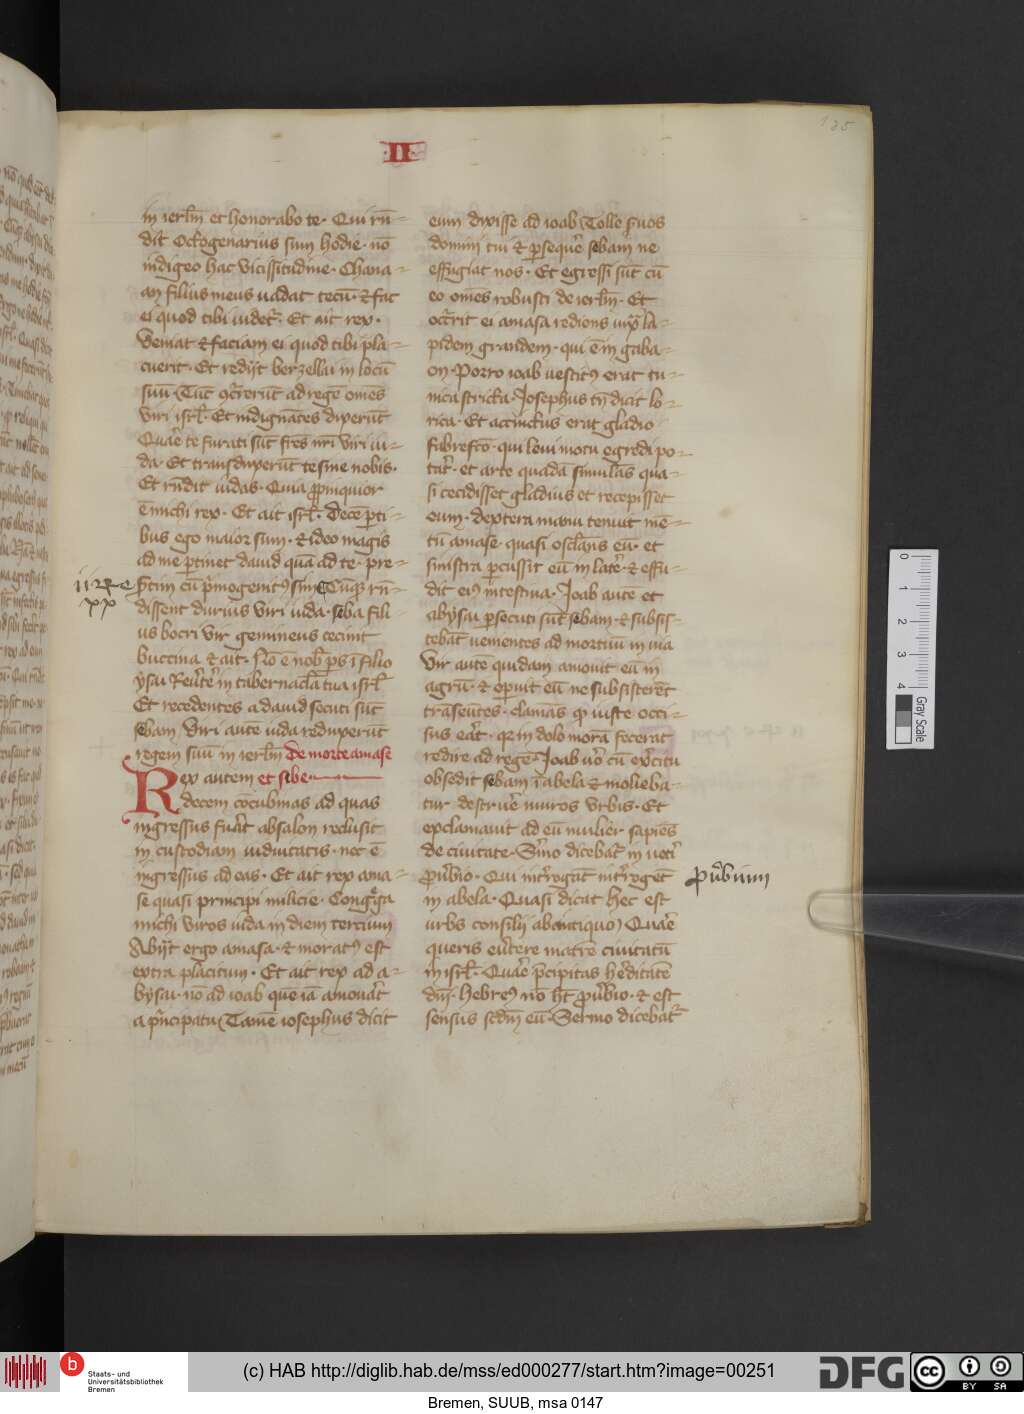 135
·II·
in ierl̄m et honorabo te· Qui rn̄-
dit Octogenarius sum hodie· nō
indigeo hac vicissitudine· Chana-
an filius meus vadat tecū· ⁊ fac
ei quod tibi videt᷑· Et ait rex·
Veniat ⁊ faciam ei quod tibi pla-
cuerit· Et redijt berzellai in locū
suū· Tūc ꝯcurrerūt ad regē om̄es
viri isrl̄· Et indignātes dixerūt
Quare te furati sūt fr̄es nr̄i viri iu-
da· Et transduxerūt te sine nobis·
Et rn̄dit iudas· Quia ꝓpinquior
ē michi rex· Et ait isrl̄· Decē ꝑti-
bus ego maior sum· ⁊ ideo magis
ad me ꝑtinet dauid quā ad te· pre-
sertim cū pͥmogenitꝰ sim Cūqꝫ rn̄-
dissent durius viri iuda· seba fili-
us bocri vir gemineus cecinit
buccina ⁊ ait· Nō ē nob̄ ꝑs ī filio
ysai Reūtere in tabernacl̄a tua isrl̄
Et recedentes a dauid secuti sūt
sebam· Viri autē iuda reduxerūt
regem suū in ierl̄m De morte amase
Rex autem et sibe
decem cōcubinas ad quas
ingressus fuāt absalon reclusit
in custodiam viduitatis· nec ē
ingressus ad eas· Et ait rex ama-
se quasi principi milicie· Congrega
michi viros iuda in diem tercium
Abijt ergo amasa· ⁊ moratꝰ est
extra placitum· Et ait rex ad a-
bysai· nō ad ioab quē iā amouāt
a pͥncipatu Tamē iosephus dicit
eum dixisse ad ioab Tolle suos
domini tui ⁊ ꝑsequere sebam ne
effugiat nos· Et egressi sūt cū
eo om̄es robusti de ierl̄m· Et
occ̄rit ei amasa rediens iuxᵃ la-
pidem grandem· qui ē in gaba-
on· Porro ioab vestitꝰ erat tu-
nica stricta· Josephus tn̄ dicit lo-
rica· Et accinctus erat gladio
fabrefc̄o· qui leui motu egredi po-
tāt· et arte quada simulās qua-
si cecidisset gladius et recepisset
eum· dextera manu tenuit mē-
tū amase quasi oscl̄ans eū· et
sinistra ꝑcussit eū in latere· ⁊ effu-
dit eiꝰ intestina· Joab autē et
abysai ꝑsecuti sūt sebam· ⁊ subsis-
tebāt venientes ad mortuū in via
Vir aute quidam amouit eū in
agrū· ⁊ oꝑuit eū ne subsisterēt
transeūtes· clamās ꝙ iuste occi-
sus eāt· qꝛ in dolo morā fecerat
redire ad regē Joab v̊o cū exercitu
obsedit sebam ī abela ⁊ molieba-
tur destruere muros vrbis· Et
exclamauit ad eū mulier sapiēs
de ciuitate· Sermo dicebat᷑ in veti
ꝓuerbio· Qui intrrogāt intrroget
in abela· Quasi dicat hec est
vrbs consilij ab antiquo Quare
queris eūtere matrē ciuitatū
in isrl̄· Quare pͥcipitas hereditatē
dn̄i· Hebreꝰ nō hꝫ ꝓuerbio· ⁊ est
sensus scdm̄ eū· Sermo dicebat᷑
ij Re
xx
(c) HAB http://diglib.hab.de/mss/ed000277/start.htm?image=00251
Staats- und
Universitätsbibliothek
Bremen
DFG
BY SA
Bremen, SUUB, msa 0147
0
1
2
3
4
Gray Scale